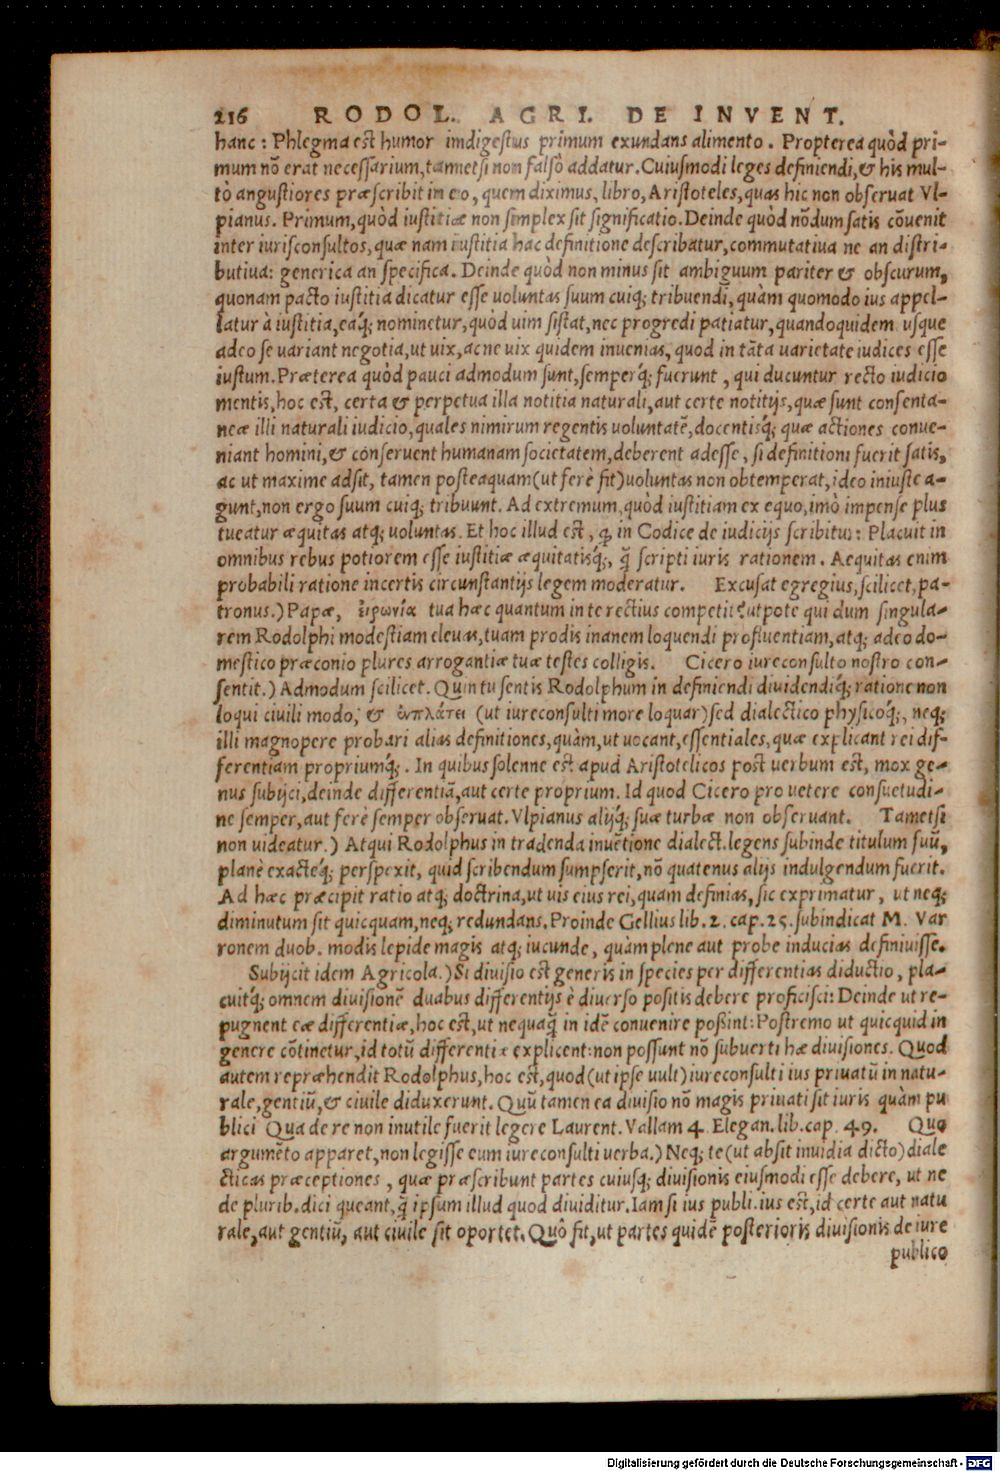 216 RODOL. AGRI. DE INVENT.
hanc: Phlegma est humor imdigestus primum exundans alimento. Propterea quòd pri-
mum nõ erat necessarium, tametsi non falsò addatur. Cuiusmodi leges definiendi, & his mul-
tò angustiores præscribit in eo, quem diximus, libro, Aristoteles, quas hic non obseruat Vl-
pianus. Primum, quòd iustitiæ non simplex sit significatio. Deinde quòd nõdum satis cõuenit
inter iurisconsultos, quæ nam iustitia hac definitione describatur, commutatiua ne an distri-
butiua: generica an specifica. Deinde quòd non minus sit ambiguum pariter & obscurum,
quonam pacto iustitia dicatur esse uoluntas suum cuiq; tribuendi, quàm quomodo ius appel-
latur à iustitia, eaq́; nominetur, quòd uim sistat, nec progredi patiatur, quandoquidem usque
adeo se uariant negotia, ut uix, ac ne uix quidem inuenias, quod in tãta uarietate iudices esse
iustum. Præterea quòd pauci admodum sunt, semperq́; fuerunt, qui ducuntur recto iudicio
mentis, hoc est, certa & perpetua illa notitia naturali, aut certe notitijs, quæ sunt consenta-
neæ illi naturali iudicio, quales nimirum regentis uoluntatẽ, docentisq́; quæ actiones conue-
niant homini, & conseruent humanam societatem, deberent adesse, si definitioni fuerit satis,
ac ut maxime adsit, tamen posteaquam (ut ferè fit) uoluntas non obtemperat, ideo iniuste a-
gunt, non ergo suum cuiq; tribuunt. Ad extremum, quòd iustitiam ex equo, imò impense plus
tueatur æquitas atq; uoluntas. Et hoc illud est, ꝙ in Codice de iudicijs scribitur: Placuit in
omnibus rebus potiorem esse iustitiæ æquitatisq́;, q̃ scripti iuris rationem. Aequitas enim
probabili ratione incertis circunstantijs legem moderatur. Excusat egregius, scilicet, pa-
tronus.) Papæ, εἰρωνία tua hæc quantum in te rectius competit? utpote qui dum singula-
rem Rodolphi modestiam eleuas, tuam prodis inanem loquendi profluentiam, atq; adeo do-
mestico præconio plures arrogantiæ tuæ testes colligis. Cicero iureconsulto nostro con-
sentit.) Admodum scilicet. Quin tu sentis Rodolphum in definiendi diuidendiq́; ratione non
loqui ciuili modo, & ἐνπλάτει (ut iureconsulti more loquar) sed dialectico physicoq́;, neq;
illi magnopere probari alias definitiones, quàm, ut uocant, essentiales, quæ explicant rei dif-
ferentiam propriumq́;. In quibus solenne est apud Aristotelicos post uerbum est, mox ge-
nus subijci, deinde differentiã, aut certe proprium. Id quod Cicero pro uetere consuetudi-
ne semper, aut ferè semper obseruat. Vlpianus alijq́; suæ turbæ non obseruant. Tametsi
non uideatur.) Atqui Rodolphus in tradenda inuẽtione dialect. legens subinde titulum suũ,
planè exacteq́; perspexit, quid scribendum sumpserit, nõ quatenus alijs indulgendum fuerit.
Ad hæc præcipit ratio atq; doctrina, ut uis eius rei, quam definias, sic exprimatur, ut neq;
diminutum sit quicquam, neq; redundans. Proinde Gellius lib. 2. cap. 25. subindicat M. Var
ronem duob. modis lepide magis atq; iucunde, quàm plene aut probe inducias definiuisse.
Subijcit idem Agricola.) Si diuisio est generis in species per differentias diductio, pla-
cuitq́; omnem diuisionẽ duabus differentijs è diuerso positis debere proficisci: Deinde ut re-
pugnent eæ differentiæ, hoc est, ut nequaq̃ in idẽ conuenire possint: Postremo ut quicquid in
genere cõtinetur, id totũ differentiæ explicent: non possunt nõ subuerti hæ diuisiones. Quod
autem repræhendit Rodolphus, hoc est, quod (ut ipse uult) iureconsulti ius priuatũ in natu-
rale, gentiũ, & ciuile diduxerunt. Quũ tamen ea diuisio nõ magis priuati sit iuris quàm pu
blici Qua de re non inutile fuerit legere Laurent. Vallam 4. Elegan. lib. cap. 49. Quo
argumẽto apparet, non legisse eum iureconsulti uerba.) Neq; te (ut absit inuidia dicto) diale
cticas præceptiones, quæ præscribunt partes cuiusq; diuisionis eiusmodi esse debere, ut ne
de plurib. dici queant, q̃ ipsum illud quod diuiditur. Iam si ius publi. ius est, id certe aut natu
rale, aut gentiũ, aut ciuile sit oportet. Quô fit, ut partes quidẽ posterioris diuisionis de iure
publico
Digitalisierung gefördert durch die Deutsche Forschungsgemeinschaft - DFG